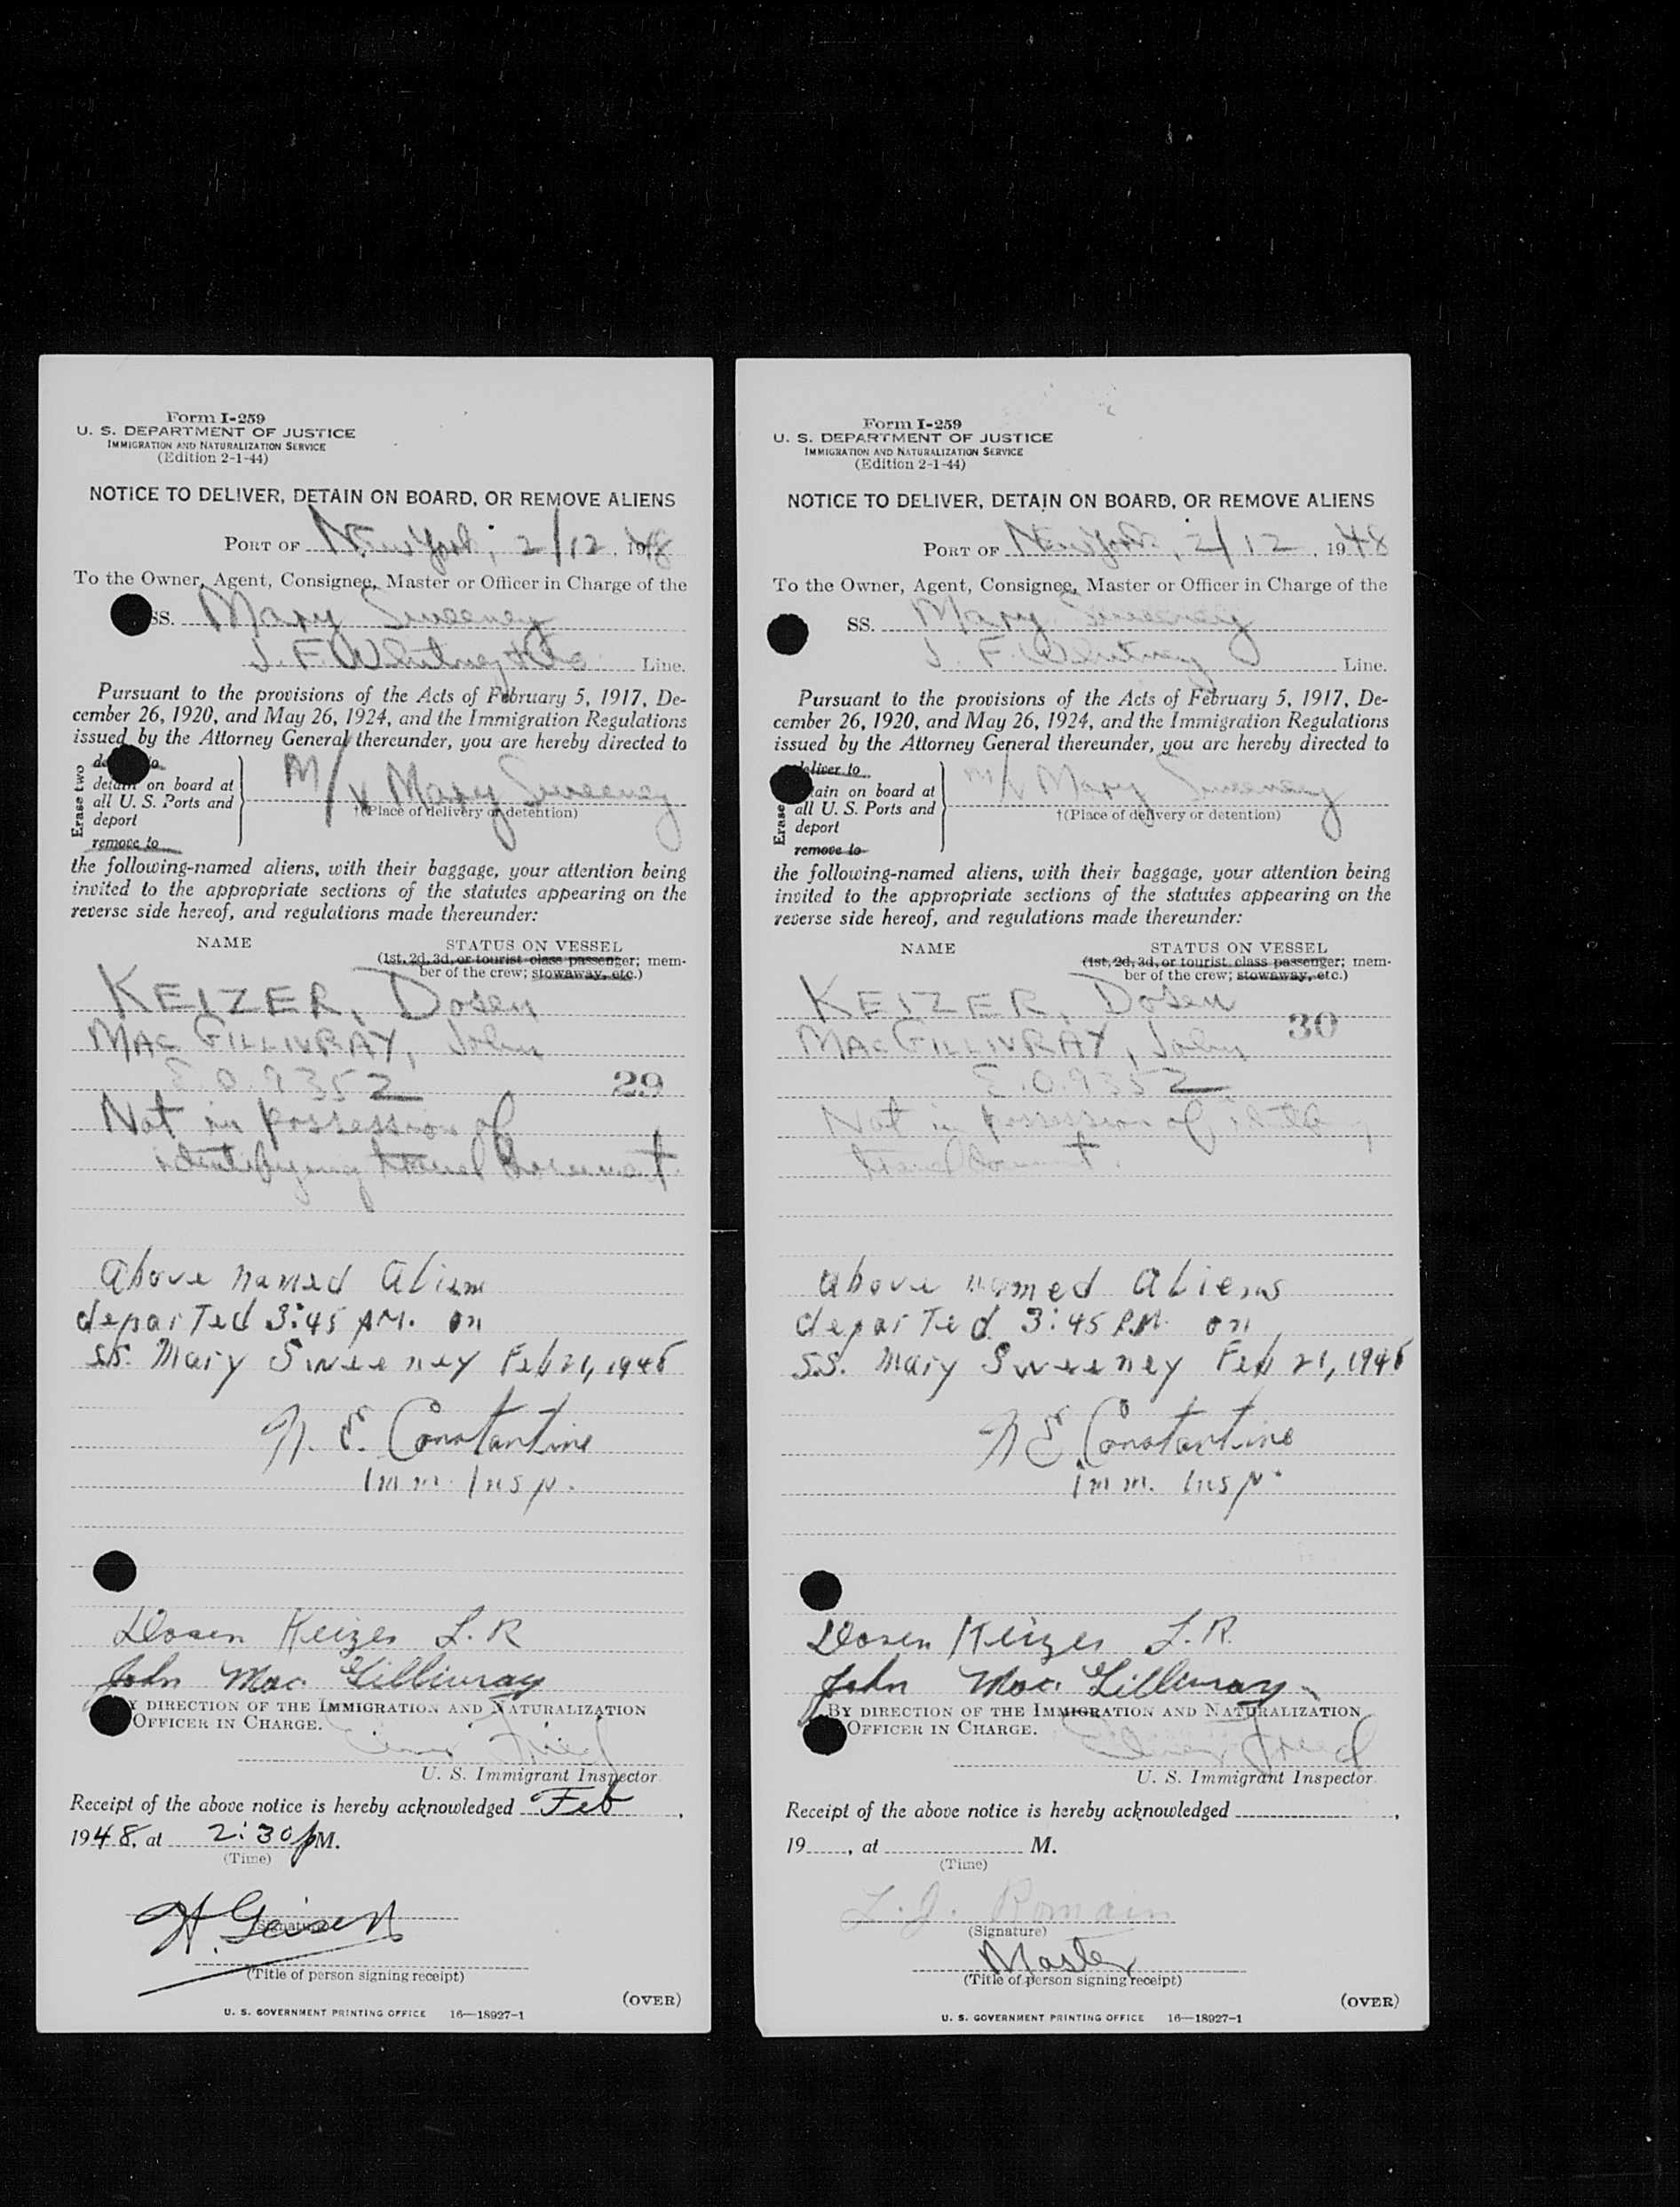 Form I-259
U. S. DEPARTMENT OF JUSTICE
IMMIGRATION AND NATURALIZATION SERVICE
(Edition 2-1-44)
NOTICE TO DELIVER, DETAIN ON BOARD, OR REMOVE ALIENS
PORT OF New York, 2/12, 1948
To the Owner, Agent, Consignee, Master or Officer in Charge of the
SS. Mary Sweeney
J. F. Whitney & Co Line.
Pursuant to the provisions of the Acts of February 5, 1917, De-
cember 26, 1920, and May 26, 1924, and the Immigration Regulations
issued by the Attorney General thereunder, you are hereby directed to
Erase two
detain on board at
all U. S. Ports and
deport
remove to
M/V Mary Sweeney
†(Place of delivery or detention)
the following-named aliens, with their baggage, your attention being
invited to the appropriate sections of the statutes appearing on the
reverse side hereof, and regulations made thereunder:
NAME STATUS ON VESSEL
(1st, 2d, 3d, or tourist class passenger; mem-
ber of the crew; stowaway, etc.)
KEIZER, Dosen
MACGILLIVRAY, John
E.O. 9352 29
Not in possession of
identifying travel document.
Above named aliens
departed 3:45 PM. on
SS. Mary Sweeney Feb 21, 1948
N. E. Constantine
Imm. Insp.
Dosen Keizer L. R
John Mac Gillivray
BY DIRECTION OF THE IMMIGRATION AND NATURALIZATION
OFFICER IN CHARGE.
U. S. Immigrant Inspector
Receipt of the above notice is hereby acknowledged Feb,
1948, at 2:30 PM.
(Time)
(Signature)
(Title of person signing receipt)
(OVER)
U. S. GOVERNMENT PRINTING OFFICE 16—18927-1
Form I-259
U. S. DEPARTMENT OF JUSTICE
IMMIGRATION AND NATURALIZATION SERVICE
(Edition 2-1-44)
NOTICE TO DELIVER, DETAIN ON BOARD, OR REMOVE ALIENS
PORT OF New York, 2/12, 1948
To the Owner, Agent, Consignee, Master or Officer in Charge of the
SS. Mary Sweeney
J. F. Whitney Line.
Pursuant to the provisions of the Acts of February 5, 1917, De-
cember 26, 1920, and May 26, 1924, and the Immigration Regulations
issued by the Attorney General thereunder, you are hereby directed to
Erase
deliver to
detain on board at
all U. S. Ports and
deport
remove to
M/V Mary Sweeney
†(Place of delivery or detention)
the following-named aliens, with their baggage, your attention being
invited to the appropriate sections of the statutes appearing on the
reverse side hereof, and regulations made thereunder:
NAME STATUS ON VESSEL
(1st, 2d, 3d, or tourist class passenger; mem-
ber of the crew; stowaway, etc.)
KEIZER, Dosen
30
MACGILLIVRAY, John
E.O. 9352
Not in possession of
travel document.
Above named aliens
departed 3:45 P.M. on
S.S. Mary Sweeney Feb 21, 1948
N E. Constantine
Imm. Insp.
Dosen Keizer L. R.
John Mac Gillivray
BY DIRECTION OF THE IMMIGRATION AND NATURALIZATION
OFFICER IN CHARGE.
U. S. Immigrant Inspector
Receipt of the above notice is hereby acknowledged ,
19 , at M.
(Time)
L. J. Romain
(Signature)
Master
(Title of person signing receipt)
(OVER)
U. S. GOVERNMENT PRINTING OFFICE 16—18927-1